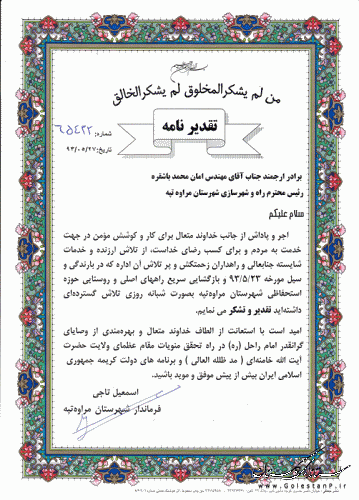 من لم یشکرالمخلوق لم یشکرالخالق
تقدیر نامه
شماره: ۶۵۴۲۲
تاریخ: ۹۳/۰۵/۲۷
برادر ارجمند جناب آقای مهندس امان محمد باشقره
رئیس محترم راه و شهرسازی شهرستان مراوه تپه
سلام علیکم
اجر و پاداش از جانب خداوند متعال برای کار و کوشش مؤمن در جهت
خدمت به مردم و برای کسب رضای خداست، از تلاش ارزنده و خدمات
شایسته جنابعالی و راهداران زحمتکش و پر تلاش آن اداره که در بارندگی و
سیل مورخه ۹۳/۵/۲۳ و بازگشایی سریع راههای اصلی و روستایی حوزه
استحفاظی شهرستان مراوه‌تپه بصورت شبانه روزی تلاش گسترده‌ای
داشته‌اید تقدیر و تشکر می نمایم.
امید است با استعانت از الطاف خداوند متعال و بهره‌مندی از وصایای
گرانقدر امام راحل (ره) در راه تحقق منویات مقام عظمای ولایت حضرت
آیت الله خامنه‌ای ( مد ظلله العالی ) و برنامه های دولت کریمه جمهوری
اسلامی ایران بیش از پیش موفق و موید باشید.
اسمعیل تاجی
فرماندار شهرستان مراوه‌تپه
www.GolestanP.ir